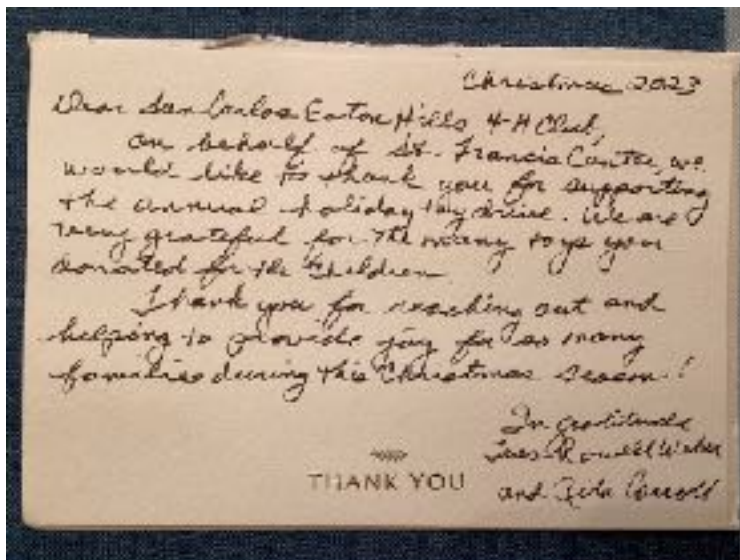 Christmas 2023
Dear San Carlos Eaton Hills 4-H Club,
on behalf of St. Francis Center, we
would like to thank you for supporting
the annual holiday toy drive. We are
very grateful for the many toys you
donated for the children
Thank you for reaching out and
helping to provide joy for so many
families during this Christmas season!
In gratitude
and Carroll
THANK YOU